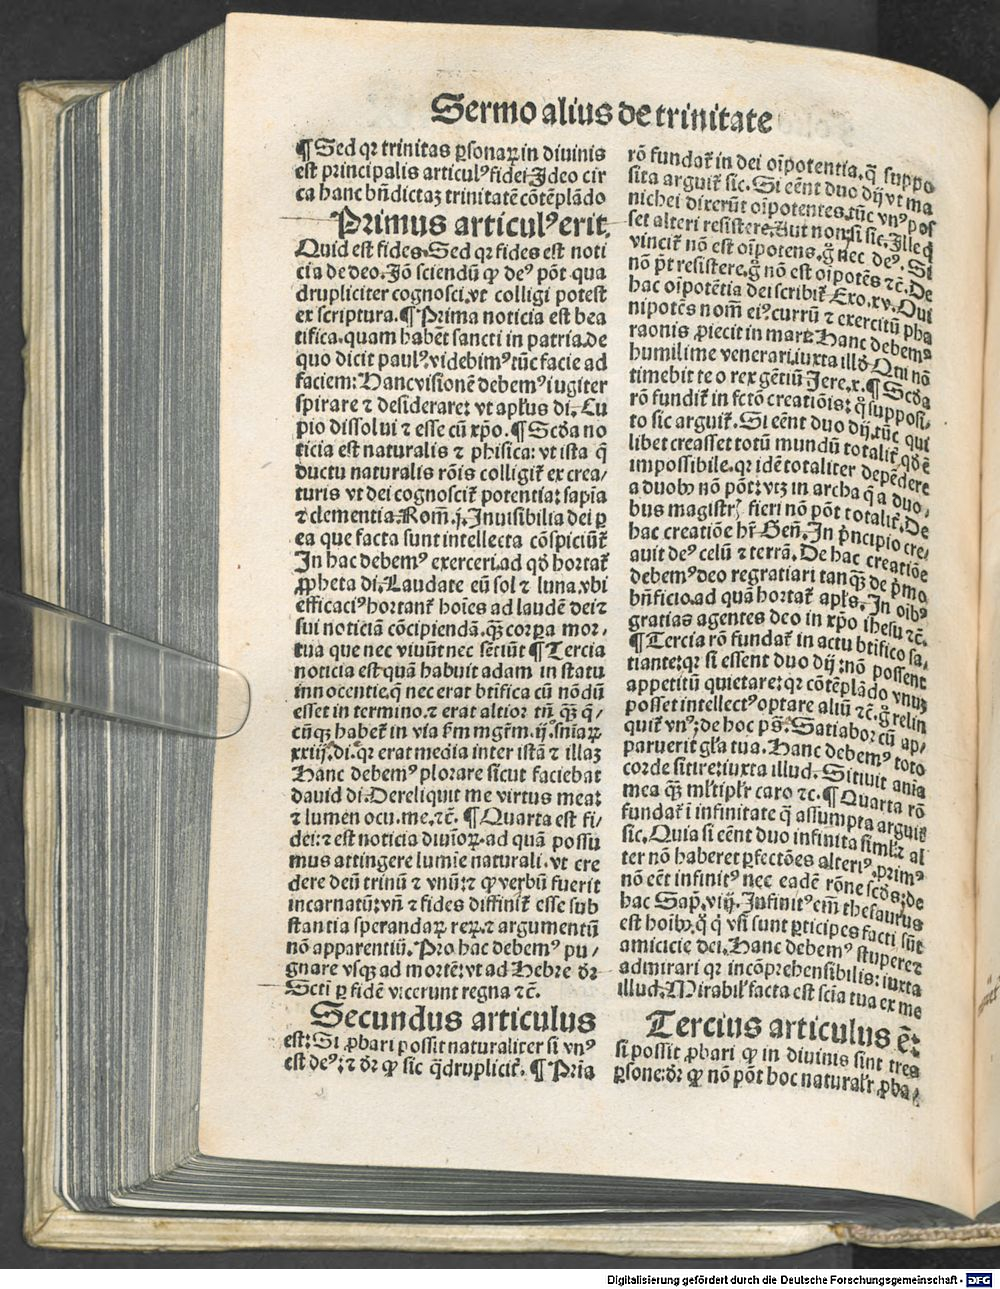 Sermo alius de trinitate
¶ Sed qꝛ trinitas ꝑsonaꝝ in diuinis
est principalis articulꝰ fidei Ideo cir
ca hanc bn̄dictaʒ trinitatē cōtēplādo
Primus articulꝰ erit.
Quid est fides. Sed qꝛ fides est noti
cia de deo. Iō sciendū ꝙ deꝰ pōt qua
drupliciter cognosci. vt colligi potest
ex scriptura. ¶ Prima noticia est bea
tifica. quam habēt sancti in patria. de
quo dicit paulꝰ. videbimꝰ tūc facie ad
faciem: Hanc visionē debemꝰ iugiter
spirare ⁊ desiderare: vt apl̓us di. Cu
pio dissolui ⁊ esse cū xp̄o. ¶ Scd̓a no
ticia est naturalis ⁊ phisica: vt ista q̄
ductu naturalis rōis colligit̄ ex crea/
turis vt dei cognoscit̄ potentia: sapia
⁊ clementia. Rom̄. j. Inuisibilia dei ꝑ
ea que facta sunt intellecta cōspiciūt̄
In hac debemꝰ exerceri. ad qd̓ hortat̄
ꝓpheta di. Laudate eū sol ⁊ luna. vbi
efficaciꝰ hortant̄ hoīes ad laudē dei ⁊
sui noticiā cōcipiendā. qꝫ corꝑa mor/
tua que nec viuūt nec sētiūt ¶ Tercia
noticia est quā habuit adam in statu
innocentie. q̄ nec erat btīfica cū nōdū
esset in termino. ⁊ erat altior tn̄ qꝫ q̄/
cūqꝫ habet̄ in via fm̄ mgr̄m. ij. sniaꝝ
xxiij. di. qꝛ erat media inter istā ⁊ illaʒ
Hanc debemꝰ plorare sicut faciebat
dauid di. Dereliquit me virtus mea:
⁊ lumen ocu. me. ⁊c̄. ¶ Quarta est fi/
dei: ⁊ est noticia diuīoꝝ. ad quā possu
mus attingere lumīe naturali. vt cre
dere deū trinū ⁊ vnū: ⁊ ꝙ verbū fuerit
incarnatū: vn̄ ⁊ fides diffinit̄ esse sub
stantia sperandaꝝ reꝝ. ⁊ argumentū
nō apparentiū. Pro hac debemꝰ pu/
gnare vsqꝫ ad mortē: vt ad Hebre dr̄
Scti ꝑ fidē vicerunt regna ⁊c̄.
Secundus articulus
est: Si ꝓbari possit naturaliter si vnꝰ
est deꝰ: ⁊ dr̄ ꝙ sic q̄druplicit̄. ¶ Pria
rō fundat̄ in dei oīpotentia. q̄ suppo
sita arguit̄ sic. Si eēnt duo dij vt ma
nichei dixerūt oīpotentes. tūc vnꝰ pos
set alteri resistere. Aut non. si sic. Ille q̄
vincit̄ nō est oīpotens. g̊ nec deꝰ. Si
nō pt̄ resistere. g̊ nō est oīpotēs ⁊c̄. De
hac oīpotētia dei scribit̄ Exo. xv. Oui
nipotēs nom̄ eiꝰ currū ⁊ exercitū pha
raonis ꝓiecit in mare Hanc debemꝰ
humilime venerari. iuxta illd̓. Qui nō
timebit te o rex gētiū Jere. x. ¶ Scd̓a
rō fundit̄ in fctō creatiōis: q̄ supposi/
to sic arguit̄. Si eēnt duo dij. tūc qui
libet creasset totū mundū totalit̄. qd̓ ē
impossibile. qꝛ idē totaliter depēdere
a duobꝰ nō pōt: vtꝫ in archa q̄ a duo/
bus magistrꝭ fieri nō pōt totalit̄. De
hac creatiōe hr̄ Gen̄. In p̄ncipio cre/
auit deꝰ celū ⁊ terrā. De hac creatiōe
debemꝰ deo regratiari tanqꝫ de p̄mo
bn̄ficio. ad quā hortat̄ apl̓s. In oībꝰ
gratias agentes deo in xp̄o ihesu ⁊c̄.
¶ Tercia rō fundat̄ in actu btīfico sa/
tiante: qꝛ si essent duo dij: nō possent
appetitū quietare: qꝛ cōtēplādo vnuʒ
posset intellectꝰ optare aliū ⁊c̄. g̊ relin
quit̄ vnꝰ: de hoc ps̄. Satiabor cū ap/
paruerit gl̓a tua. Hanc debemꝰ toto
corde sitire: iuxta illud. Sitiuit anīa
mea qꝫ ml̓tipl̓r caro ⁊c. ¶ Quarta rō
fundat̄ ī infinitate q̄ assumpta arguit̄
sic. Quia si eēnt duo infinita siml̓: ⁊ al
ter nō haberet ꝑfectōes alteriꝰ. primꝰ
nō eēt infinitꝰ nec eadē rōne scd̓s: de
hac Sap̄. viij. Infinitꝰ em̄ thesaurus
est hoībꝰ. q̊ q̄ vsi sunt ꝑticipes facti sūt
amicicie dei. Hanc debemꝰ stupere ⁊
admirari qꝛ incōprehensibilis: iuxta
illud. Mirabil̓ facta est scīa tua ex me
Tercius articulus ē:
si possit ꝓbari ꝙ in diuinis sint tres
ꝑsone: dr̄ ꝙ nō pōt hoc natural̓r ꝓba/
Digitalisierung gefördert durch die Deutsche Forschungsgemeinschaft - DFG